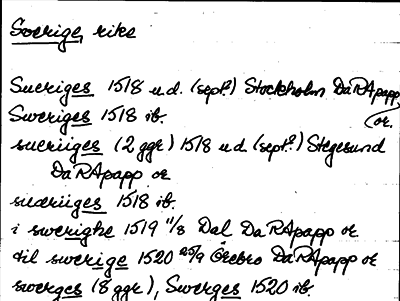 Sverige, rike
Sueriges 1518 u.d. (sept?) Stockholm DaRApapp
Sweriges 1518 ib. or.
sueriiges (2 ggr) 1518 u.d. (sept?) Stegesund
DaRApapp or
suæriiges 1518 ib.
i swerighe 1519 11/8 Dal DaRApapp or
til swerige 1520 25/9 Örebro DaRApapp or
swerges (8 ggr), Swerges 1520 ib.